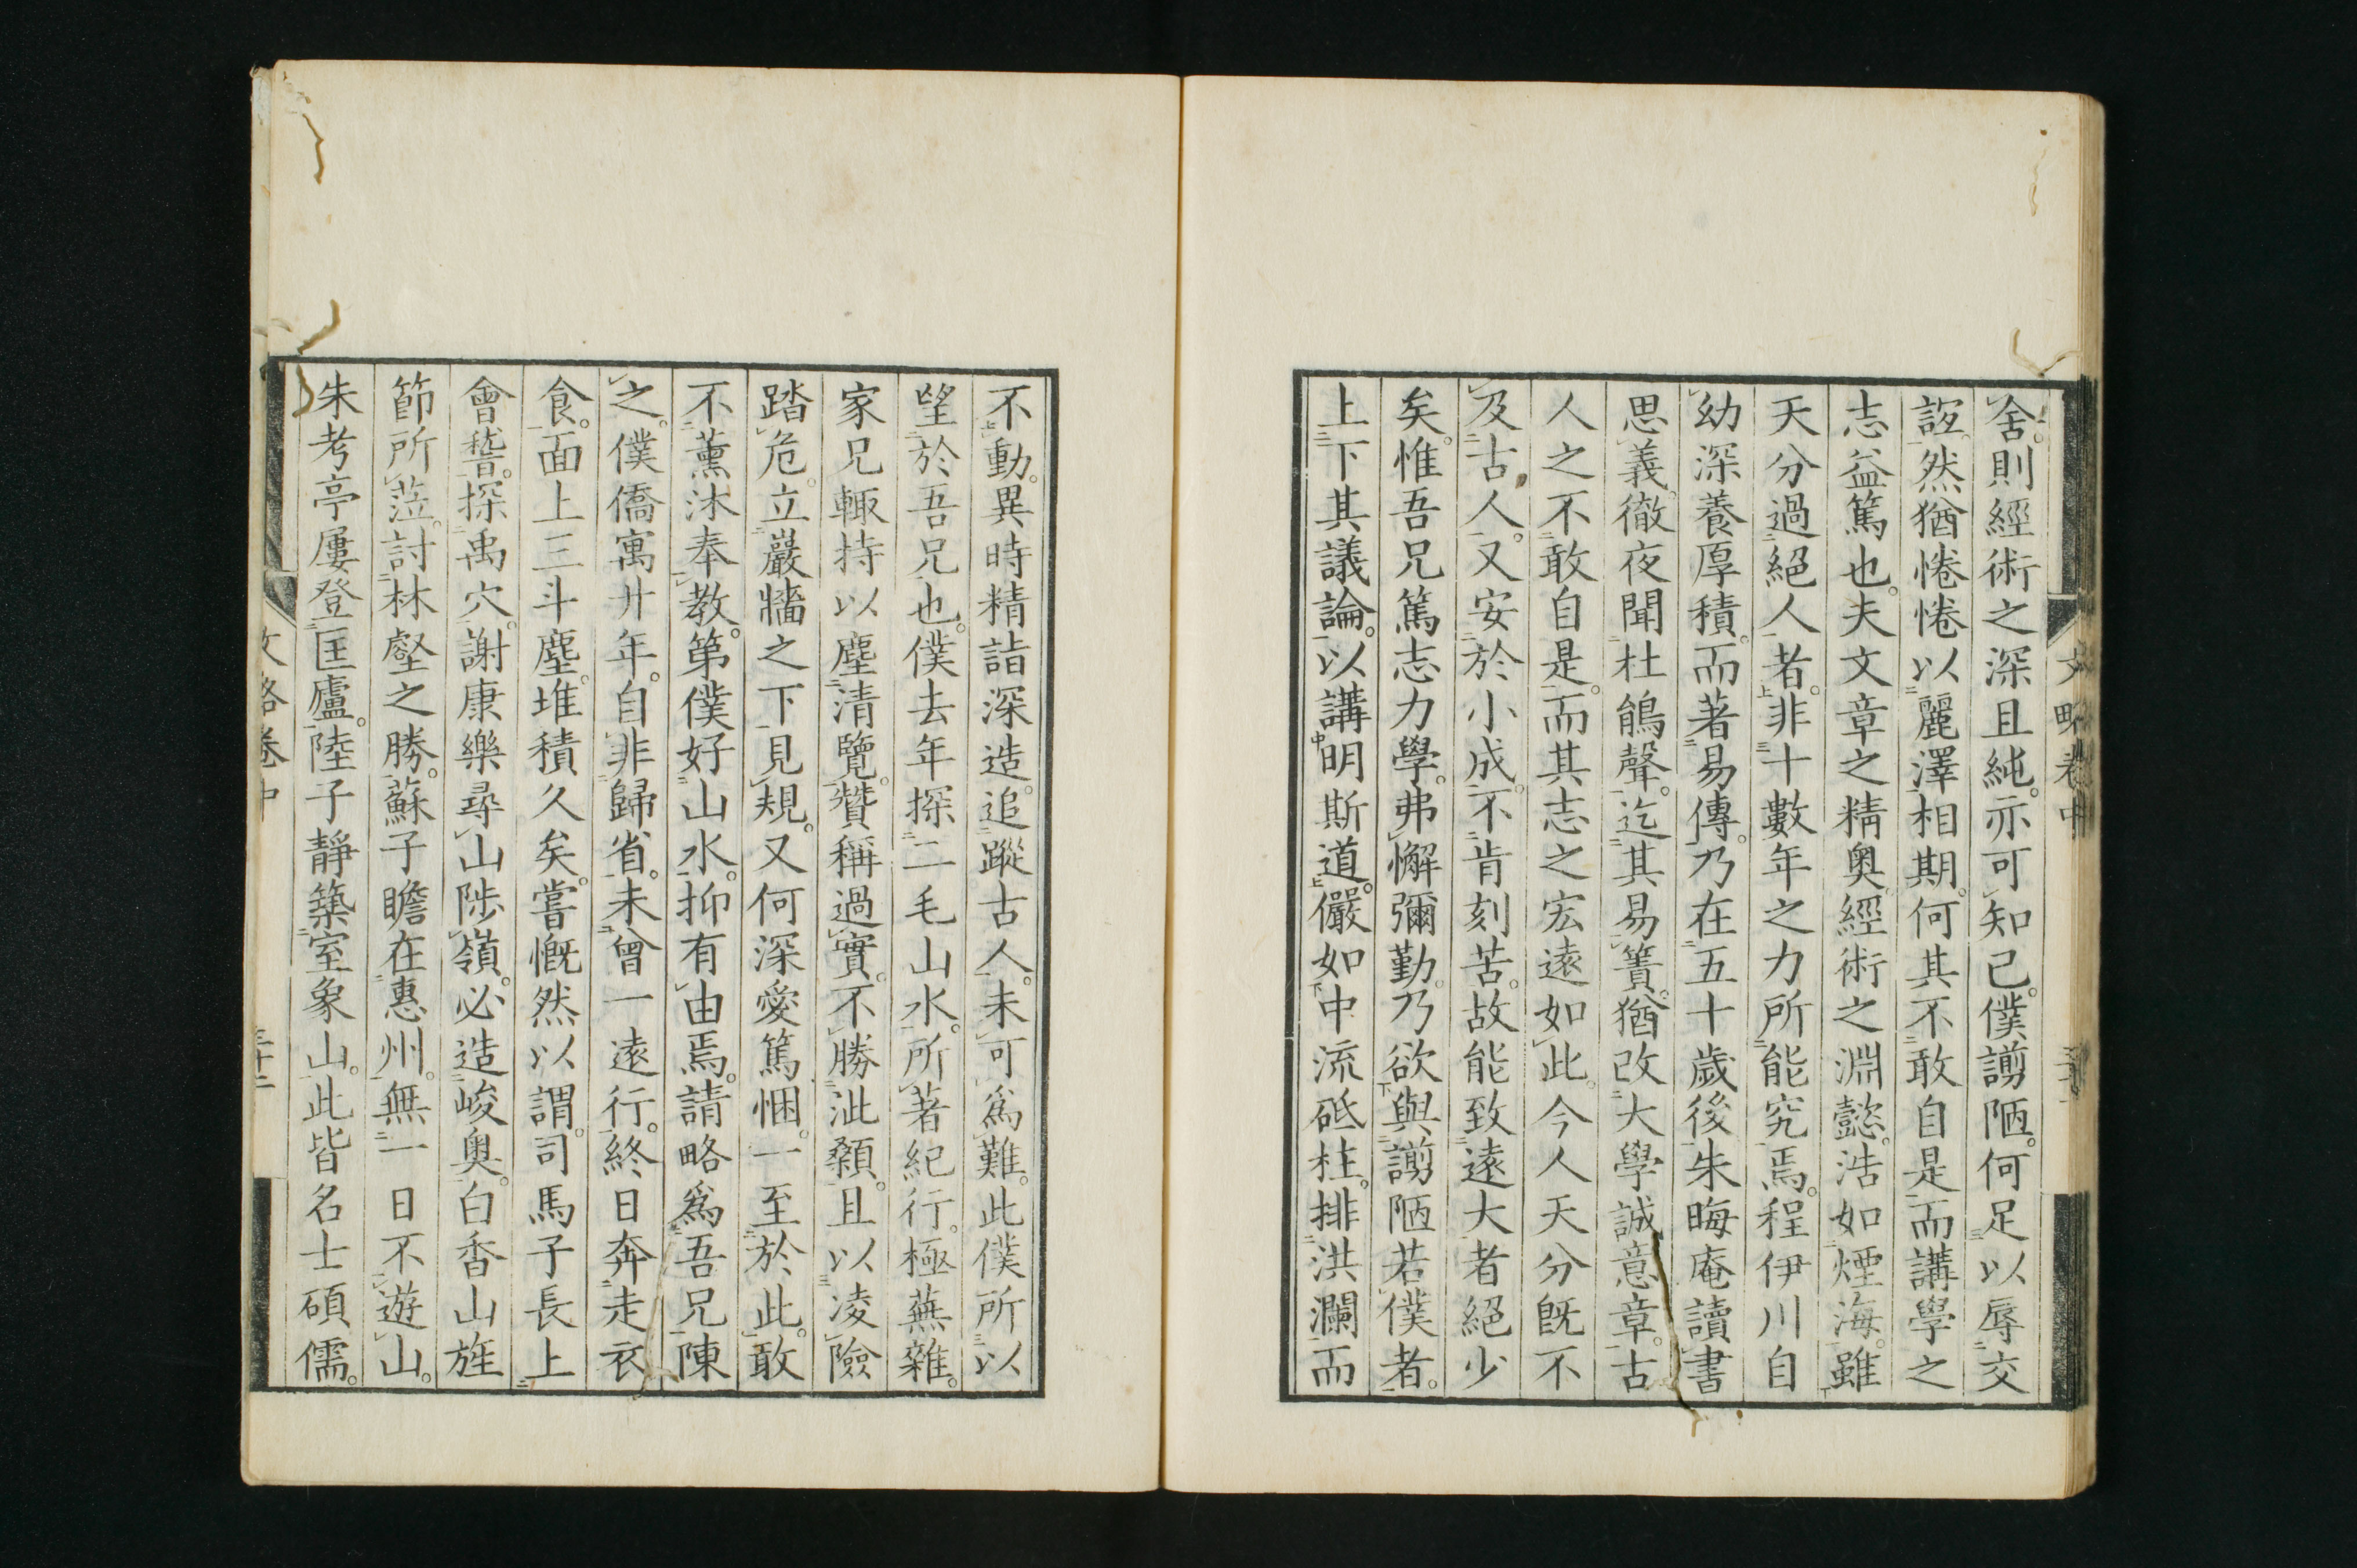 舍。則經術之深且純。亦可知已。僕謭陋。何足以辱交
誼。然猶惓惓以麗澤相期。何其不敢自是。而講學之
志益篤也。夫文章之精奧。經術之淵懿。浩如煙海。雖
天分過絕人者。非十數年之力所能究焉。程伊川自
幼深養厚積。而著易傳。乃在五十歲後。朱晦庵讀書
思義。徹夜聞杜鵑聲。迄其易簀。猶改大學誠意章。古
人之不敢自是。而其志之宏遠如此。今人天分既不
及古人。又安於小成。不肯刻苦。故能致遠大者絕少
矣。惟吾兄篤志力學。弗懈彌勤。乃欲與謭陋若僕者。
上下其議論。以講明斯道。儼如中流砥柱。排洪瀾而
不動。異時精詣深造。追蹤古人。未可為難。此僕所以
望於吾兄也。僕去年探二毛山水。所著紀行。極蕪雜。
家兄輒持以塵清覽。贊稱過實。不勝泚顙。且以凌險
踏危。立巖牆之下見規。又何深愛篤悃。一至於此。敢
不薰沐奉教。第僕好山水。抑有由焉。請略為吾兄陳
之。僕僑寓廿年。自非歸省。未曾一遠行。終日奔走衣
食。面上三斗塵。堆積久矣。嘗慨然以謂。司馬子長上
會嵇。探禹穴。謝康樂尋山陟嶺。必造峻奧。白香山旌
節所蒞。討林壑之勝。蘇子瞻在惠州。無一日不遊山。
朱考亭屢登匡廬。陸子靜築室象山。此皆名士碩儒。
文略卷中
文略卷中
三十二